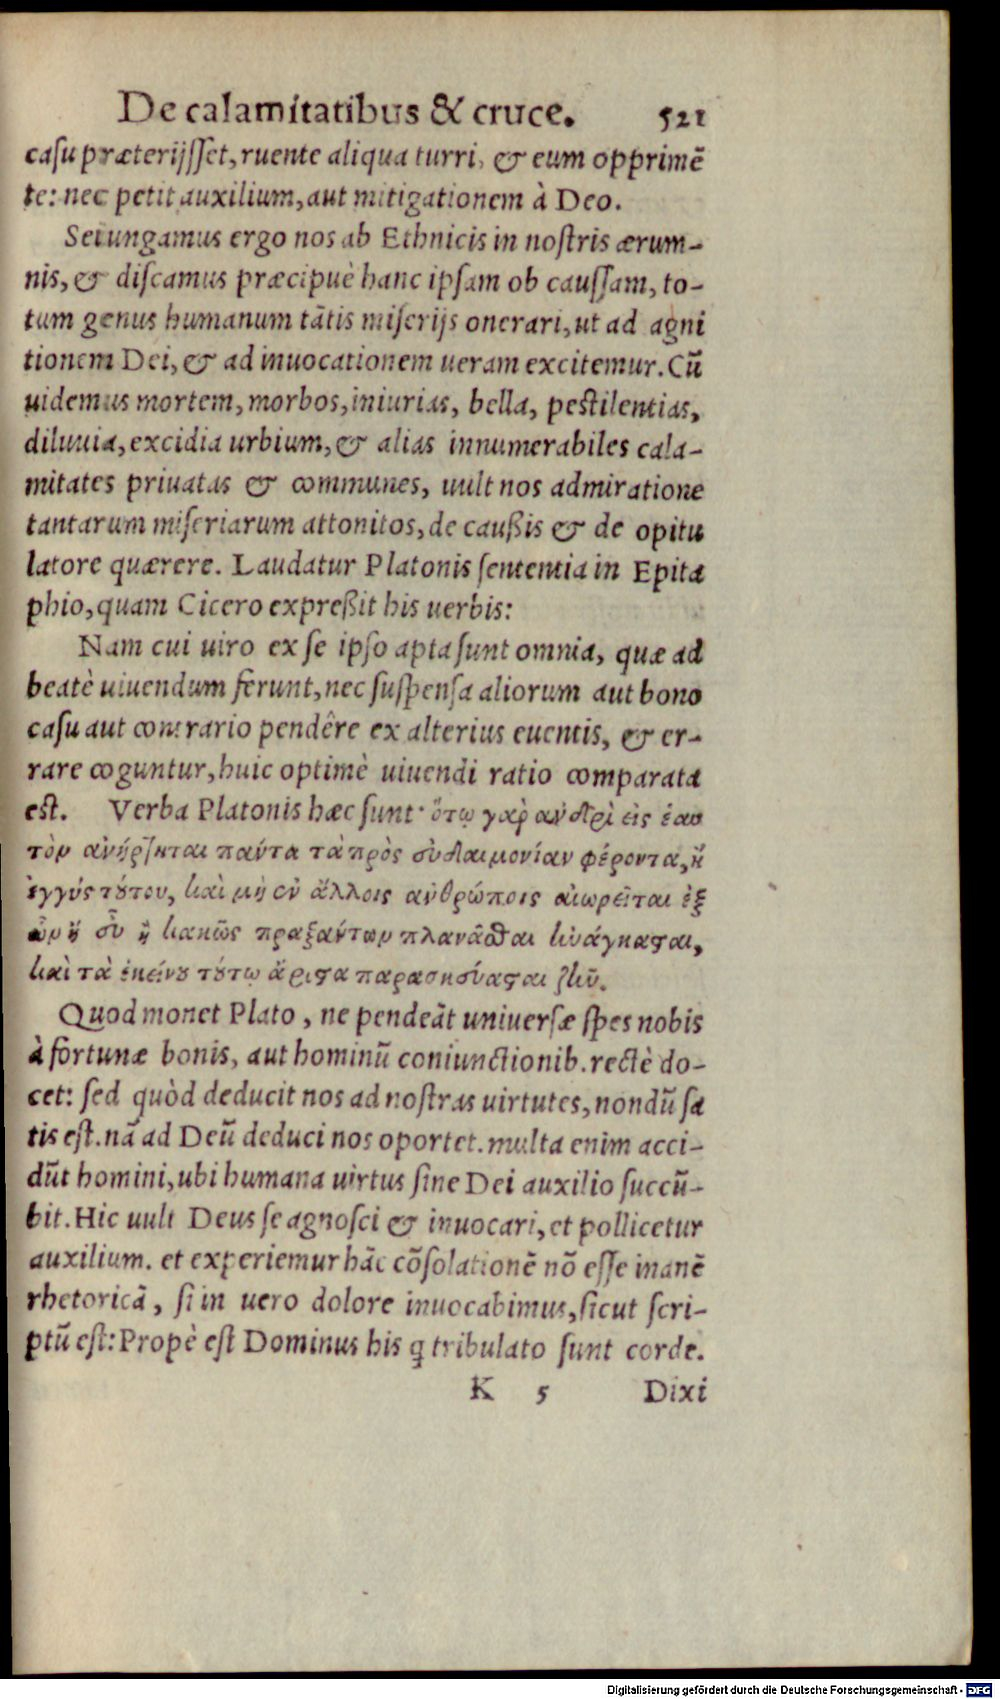 De calamitatibus & cruce. 521
casu præterijsset, ruente aliqua turri, & eum opprimẽ
te: nec petit auxilium, aut mitigationem à Deo.
Seiungamus ergo nos ab Ethnicis in nostris ærum-
nis, & discamus præcipuè hanc ipsam ob caussam, to-
tum genus humanum tãtis miserijs onerari, ut ad agni
tionem Dei, & ad inuocationem ueram excitemur. Cũ
uidemus mortem, morbos, iniurias, bella, pestilentias,
diluuia, excidia urbium, & alias innumerabiles cala-
mitates priuatas & communes, uult nos admiratione
tantarum miseriarum attonitos, de caußis & de opitu
latore quærere. Laudatur Platonis sententia in Epita
phio, quam Cicero expreßit his uerbis:
Nam cui uiro ex se ipso apta sunt omnia, quæ ad
beatè uiuendum ferunt, nec suspensa aliorum aut bono
casu aut contrario pendêre ex alterius euentis, & er-
rare coguntur, huic optimè uiuendi ratio comparata
est. Verba Platonis hæc sunt· ὅτῳ γαρ̀ ἀνδρὶ εἰς ἑαυ
τὸν ἀνήρτηται παντα τὰ πρὸς ἐυδαιμονίαν φέροντα, ἢ
ἐγγύς τούτου, καὶ μὴ ἐν ἄλλοις ἀνθρώποις ἀιωρεῖται ἐξ
ὧν ἢ εὖ ἢ κακῶς πραξάντων πλανᾶσθαι ἠνάγκασαι,
καὶ τὰ ἐκείνου τούτῳ ἄριστα παρασκεύασαι ζῆν.
Quod monet Plato, ne pendeãt uniuersæ spes nobis
à fortunæ bonis, aut hominũ coniunctionib. rectè do-
cet: sed quòd deducit nos ad nostras uirtutes, nondũ sa
tis est. nã ad Deũ deduci nos oportet. multa enim acci-
dũt homini, ubi humana uirtus sine Dei auxilio succũ-
bit. Hic uult Deus se agnosci & inuocari, et pollicetur
auxilium. et experiemur hãc cõsolationẽ nõ esse inanẽ
rhetoricã, si in uero dolore inuocabimus, sicut scri-
ptũ est: Propè est Dominus his q tribulato sunt corde.
K 5 Dixi
Digitalisierung gefördert durch die Deutsche Forschungsgemeinschaft - DFG